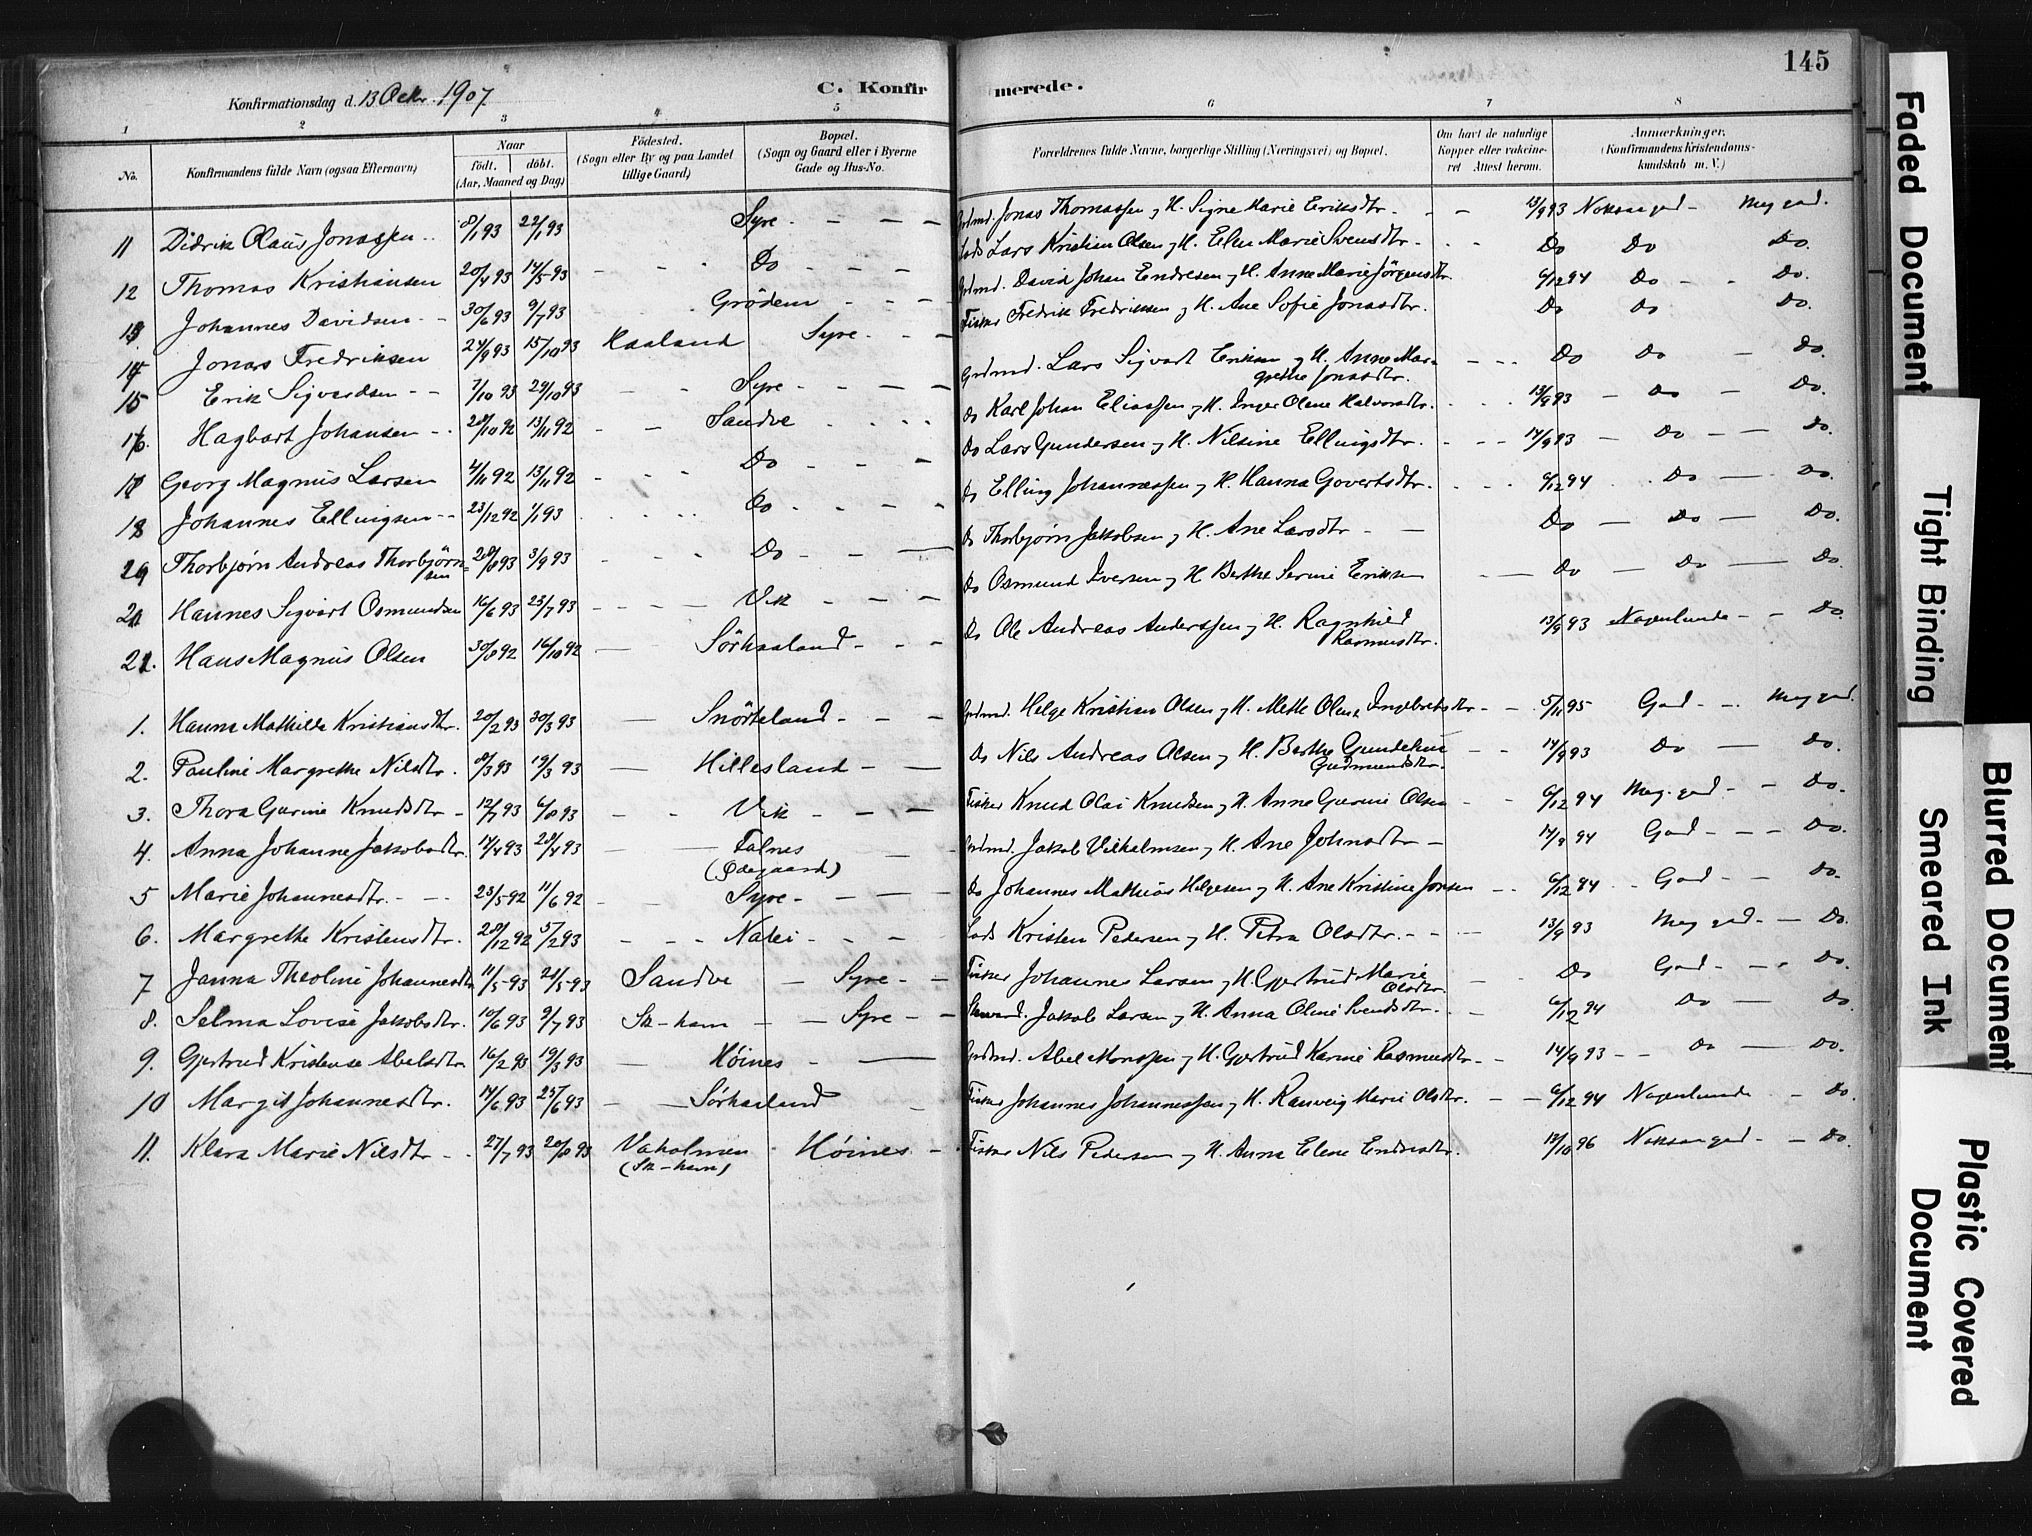 145
Konfirmationsdag d. 13 Octr. 1907
C. Konfirmerede.
1 2 3 4 5 6 7 8
No.
Konfirmandens fulde Navn (ogsaa Efternavn)
Naar
født. døbt.
(Aar, Maaned og Dag)
Fødested.
(Sogn eller By og paa Landet
tillige Gaard)
Bopæl.
(Sogn og Gaard eller i Byerne
Gade og Hus-No.
Forældrenes fulde Navne, borgerlige Stilling (Næringsvei) og Bopæl.
Om havt de naturlige
Kopper eller vakcine-
ret Attest herom.
Anmærkninger.
(Konfirmandens Kristendoms-
kundskab m. V.)
11 Didrik Olaus Jonassen 8/1 93 22/1 93 Syre Grdmd. Jonas Thomassen og H. Signe Marie Eriksdtr. 13/9 93 Noksaa god Meg god.
12 Thomas Kristiansen 20/4 93 14/5 93 Do Lods Lars Kristian Olsen og H. Elen Marie Svensdtr. Do Do Do.
13 Johannes Davidsen 30/6 93 9/7 93 Grödem Grdmd. David Johan Endresen og H. Anne Marie Jörgensdtr 6/12 94 Do Do.
14 Jonas Fredriksen 24/9 93 15/10 93 Haaland Syre Fisker Fredrik Fredriksen og H. Ane Sofie Jonasdtr. Do Do Do.
15 Erik Sigvardsen 7/10 93 29/10 93 Syre Grdmd. Lars Sigvart Eriksen og H. Anne Mar-
grethe Jonasdtr. Do Do Do.
16. Hagbart Johansen 28/10 92 13/11 92 Sandve Do Karl Johan Eliassen og H. Inger Olene Halvorsdtr. 13/9 93 Do Do.
17 Georg Magnus Larsen 4/11 92 13/11 92 Do Do Lars Gundersen og H. Nilsine Ellingsdtr. 14/9 93 Do Do.
18 Johannes Ellingsen 23/12 92 1/1 93 Do Do Elling Johannessen og H. Hanna Govertsdtr. 6/12 94 Do Do.
Thorbjørn Andreas Thorbjörn=
sen 28/8 93 3/9 93 Do Do Thorbjørn Jakobsen og H. Ane Larsdtr Do Do Do.
Hannes Sigvart Osmundsen 16/6 93 23/7 93 Vik Do Osmund Iversen og H Berthe Serine Eriksen Do Do Do.
21. Hans Magnus Olsen 30/8 92 16/10 92 Sörhaaland Do Ole Andreas Anderssen og H. Ragnhild
Rasmusdtr. 13/9 93 Nogenlunde Do.
1. Hanna Mathilde Kristiansdtr. 20/2 93 30/3 93 Snörteland Grdmd. Helge Kristian Olsen og H. Mette Olene Ingebretsdtr 5/11 95 God Meg god.
2. Pauline Margrethe Nilsdtr. 8/3 93 19/3 93 Hillesland Do Nils Andreas Olsen og H. Berthe Gundeline
Gudmundsdtr. 14/9 93 Do Do.
3. Thora Gurine Knudsdtr 12/7 93 6/8 93 Vik Fisker Knud Olai Knudsen og H. Anne Gurine Olsen 6/12 94 Meg. god Do.
4. Anna Johanne Jakobsdtr. 14/4 93 28/4 93 Falnes
(Ödegaard) Grdmd. Jakob Vilhelmsen og H. Ane Johnsdtr 14/9 94 God Do.
5 Marie Johannesdtr. 23/5 92 11/6 92 Syre Do Johannes Mathias Helgesen og H. Ane Kristine Jonsen 6/12 94 God Do.
6. Margrethe Kristensdtr. 28/12 92 5/2 93 Nalei Lods Kristen Pedersen og H. Petra Olsdtr. 13/9 93 Meg god Do.
7 Janna Theoline Johannesdtr 11/5 93 21/5 93 Sandve Syre Fisker Johannes Larsen og H. Gjertrud Marie
Olsdtr. Do God Do.
8. Selma Lovise Jakobsdtr. 10/6 93 9/7 93 Sk-havn Syre Jakob Larsen og H. Anna Oline Svendsdtr. 6/12 94 Do Do.
9. Gjertrud Kristense Abelsdtr 16/2 93 19/3 93 Höines Grdmd. Abel Monssen og H. Gjertrud Karine Rasmusdtr 14/9 93 Do Do.
10 Margit Johannesdtr. 14/6 93 25/6 93 Sørhaaland Fisker Johannes Johannessen og H. Ranveig Marie Olsdtr. 6/12 94 Nogenlunde Do.
11. Klara Marie Nilsdtr 27/7 93 20/8 93 Vaholmen
(Sk-havn) Höines Fisker Nils Pedersen og H. Anna Elene Endresdtr. 14/10 96 Noksaa god Do.
Faded Document
Tight Binding
Blurred Document
Smeared Ink
Plastic Covered
Document